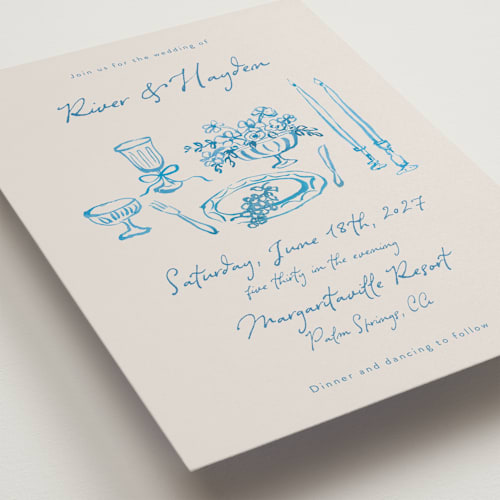 Join us for the wedding of
River & Hayden
Saturday, June 18th, 2027
five thirty in the evening
Margaritaville Resort
Palm Springs, CA
Dinner and dancing to follow